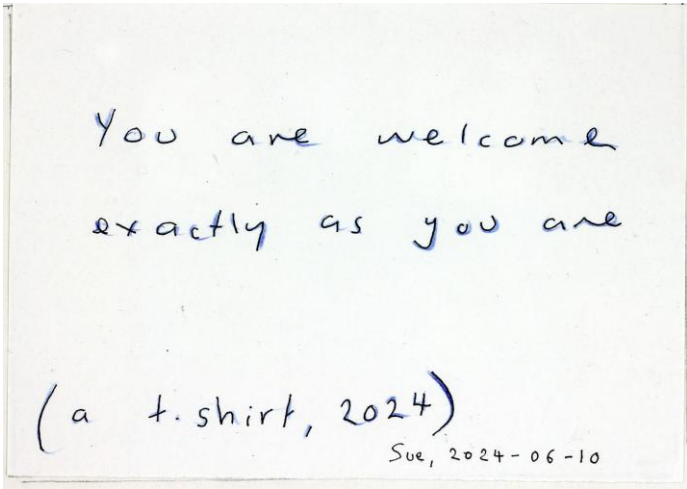 You are welcome
exactly as you are
(a t.shirt, 2024)
Sue, 2024-06-10